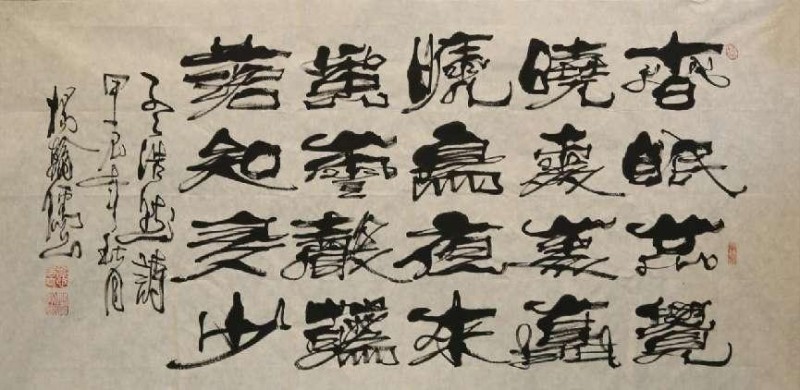 春眠不覺
曉處處聞
啼鳥夜來
風雨聲花
落知多少
孟浩然詩
甲辰年秋月
楊翰儒